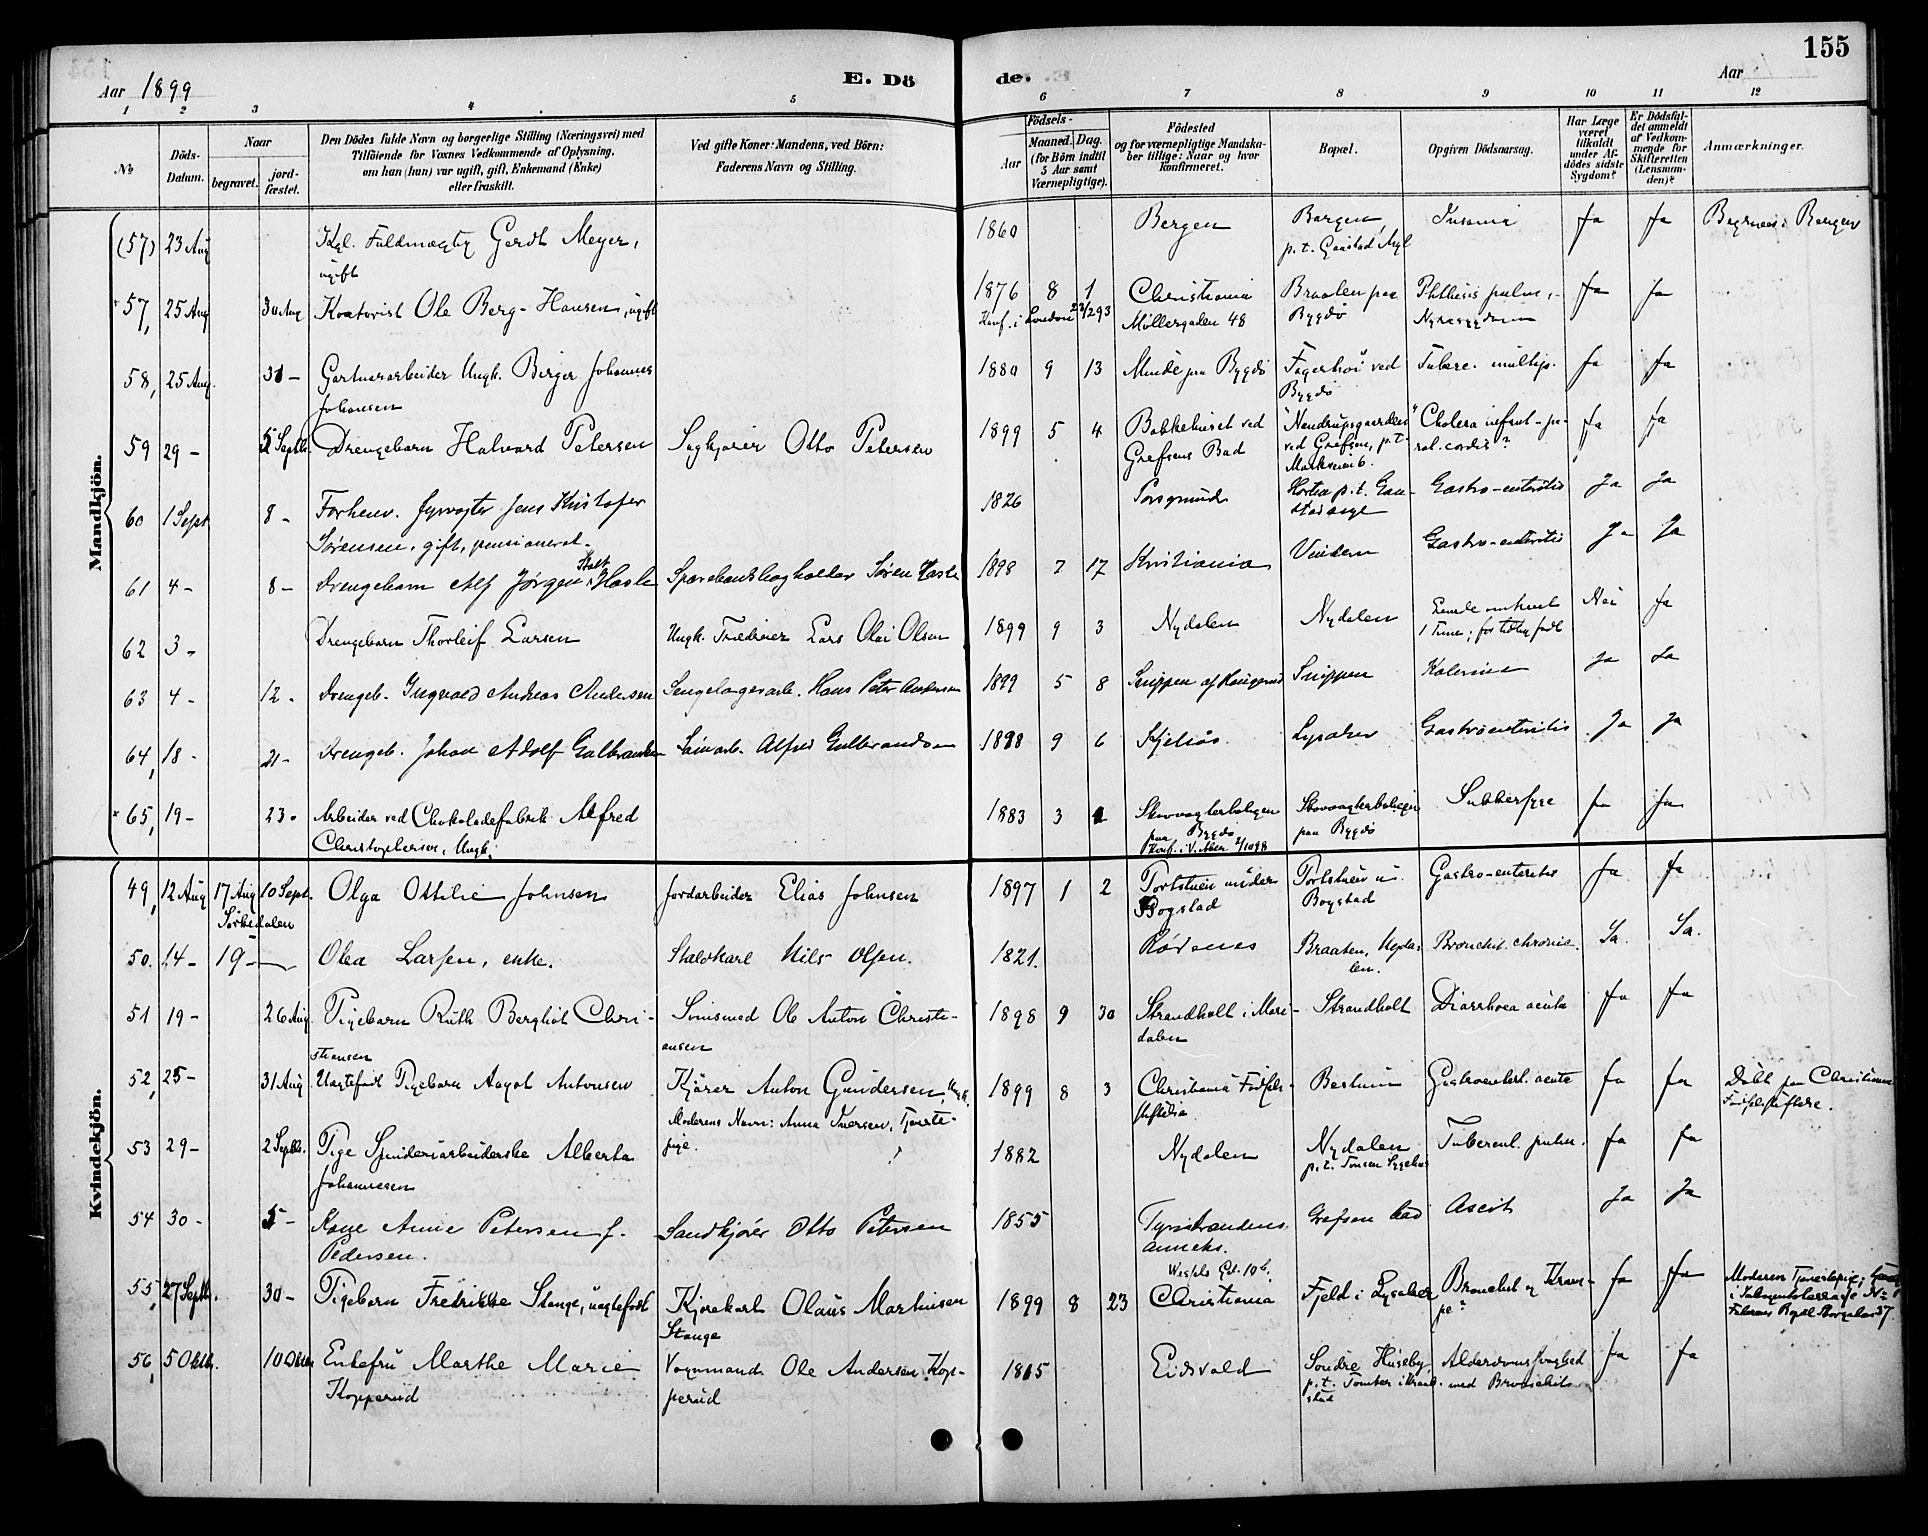 155
Aar 1899
E. Dö
de.
Aar
1 2 3 4 5 6 7 8 9 10 11 12
№
Döds-Datum.
Naar
begravet.
jord-fæstet.
Den Dödes fulde Navn og borgerlige Stilling (Næringsvei) med
Tilföiende for Voxnes Vedkommende af Oplysning,
om han (hun) var ugift, gift, Enkemand (Enke)
eller fraskilt.
Ved gifte Koner: Mandens, ved Börn:
Faderens Navn og Stilling.
Födsels-
Aar
Maaned. Dag.
(for Börn indtil
5 Aar samt
Værnepligtige).
Födested
og for værnepligtige Mandska-
ber tillige: Naar og hvor
konfirmeret.
Bopæl.
Opgiven Dödsaarsag.
Har Læge
været
tilkaldt
under Af-
dödes sidste
Sygdom?
Er Dödsfal-
det anmeldt
af Vedkom-
mende for
Skifteretten
(Lensman-
den)?
Anmærkninger.
Mandkjön.
(57) 23 Aug Kgl. Fuldmægtig Gerdt Meyer, 1860 Bergen Bergen Insania Ja Ja Begraves i Bergen
ugift p. t. Gaustad Asyl
57, 25 Aug 30 Aug Kontorist Ole Berg-Hansen, ugift 1876 8 1 Christiania Braaten paa Phthisis pulm., Ja Ja
Konf. i London Møllergaden 48 Bygdö Nyresygdom
58, 25 Aug. 31 - Gartnerarbeider Ungk. Birger Johannes 1880 9 13 Minde paa Bygdö Fagerhöi ved Tuberc. multip. Ja Ja
Johansen Bygdö
59 29 - 5 Septb. Drengebarn Halvard Petersen Sagkjører Otto Petersen 1899 5 4 Bakkehuset ved Cholera infant. - pa- Ja Ja
Grefsens Bad ved Grefsen, p. t. ral. cordis?
Markveien 6.
60 1 Sept 8 - Forhenv. fyrvogter Jens Kristofer 1826 Porsgrund Horten p. t. Gau- Gastro-enteritis Ja Ja
Sørensen, gift, pensioneret. stad asyl
61 4 - 8 - Drengebarn Alf Jörgen Holt Hasle Sparebankbogholder Søren Hasle 1898 7 17 Kristiania Vindern Gastro-enteritis Ja Ja
62 3 - Drengebarn Thorleif Larsen Ungk. Lars Olai Olsen 1899 9 3 Nydalen Nydalen Levede omtrent Nei Ja
1 Time; for tidlig født
63 4 - 12 - Drengeb. Ingvald Andreas Andersen Hans Peter Andersen 1899 5 8 Snippen Kolerine Ja Ja
64, 18 - 21 - Drengeb. Johan Adolf Gulbrandsen Alfred Gulbrandsen 1898 9 6 Kjelsås Lysaker Gastroenteritis Ja Ja
65, 19 - 23 - Arbeider ved Chokoladefabrik Alfred 1883 3 1 Skovvogterboligen Skovvogterboligen Sukkersyge Ja Ja
Christophersen, Ungk. paa Bygdö paa Bygdö
Konf. i V. Aker 2/10 98
Kvindekjön.
49, 12 Aug 17 Aug 10 Sept. Olga Ottilie Johnsen Jordarbeider Elias Johnsen 1897 1 2 Tortstuen under Tortstuen u. Gastro-enteritis Ja Ja
Sørkedalen Bogstad Bogstad
50. 14 - 19 - Olea Larsen, enke. Staldkarl Nils Olsen. 1821. Rødenes Braaten, Nyda- Bronchit. chronic. Ja. Ja.
len.
51 19 - 26 Aug. Pigebarn Ruth Bergliot Chri- Ole Anton Christi- 1898 9 30 Strandholt i Mari- Strandholt Diarrhoea acuta Ja Ja
stiansen ansen dalen
52, 25 - 31 Aug. Uægtefødt Pigebarn Aagot Antonsen Kjører Anton Gundersen, Ungk. 1899 8 3 Christiania Fødsels- Bestum Gastroenterit. acuta Ja Ja Døbt paa Christiania
Moderens Navn: Anna Iversen, Tjeneste- stiftelse Fødselsstiftelse.
pige.
53 29 - 2 Septb. Pige Spinderiarbeiderske Alberta 1882 Nydalen Nydalen Tubercul. pulm. Ja Ja
Johannesen p. t. Tonsen Sygehus
54 30 - 5 - Kone Anne Petersen f. Sandkjører Otto Petersen 1855 Tyristrandens Grefsen bad Ascit Ja Ja
Pedersen. anneks.
55, 27 Septb. 30 - Pigebarn Fredrikke Stange, uægtefødt Kjørekarl Olaus Martinsen 1899 8 23 Christiania Fjeld i Lysaker Bronchit og Kram- Ja Ja Moderen Tjenestepige,
Stange pe?
56, 5 Oktb. 10 Oktb. Enkefru Marthe Marie Vognmand Ole Andersen Kop- 1815 Eidsvold Søndre Huseby Alderdomssvaghed Ja Ja
Kopperud perud p. t. Tomter i Kraak- med Bronchit
stad